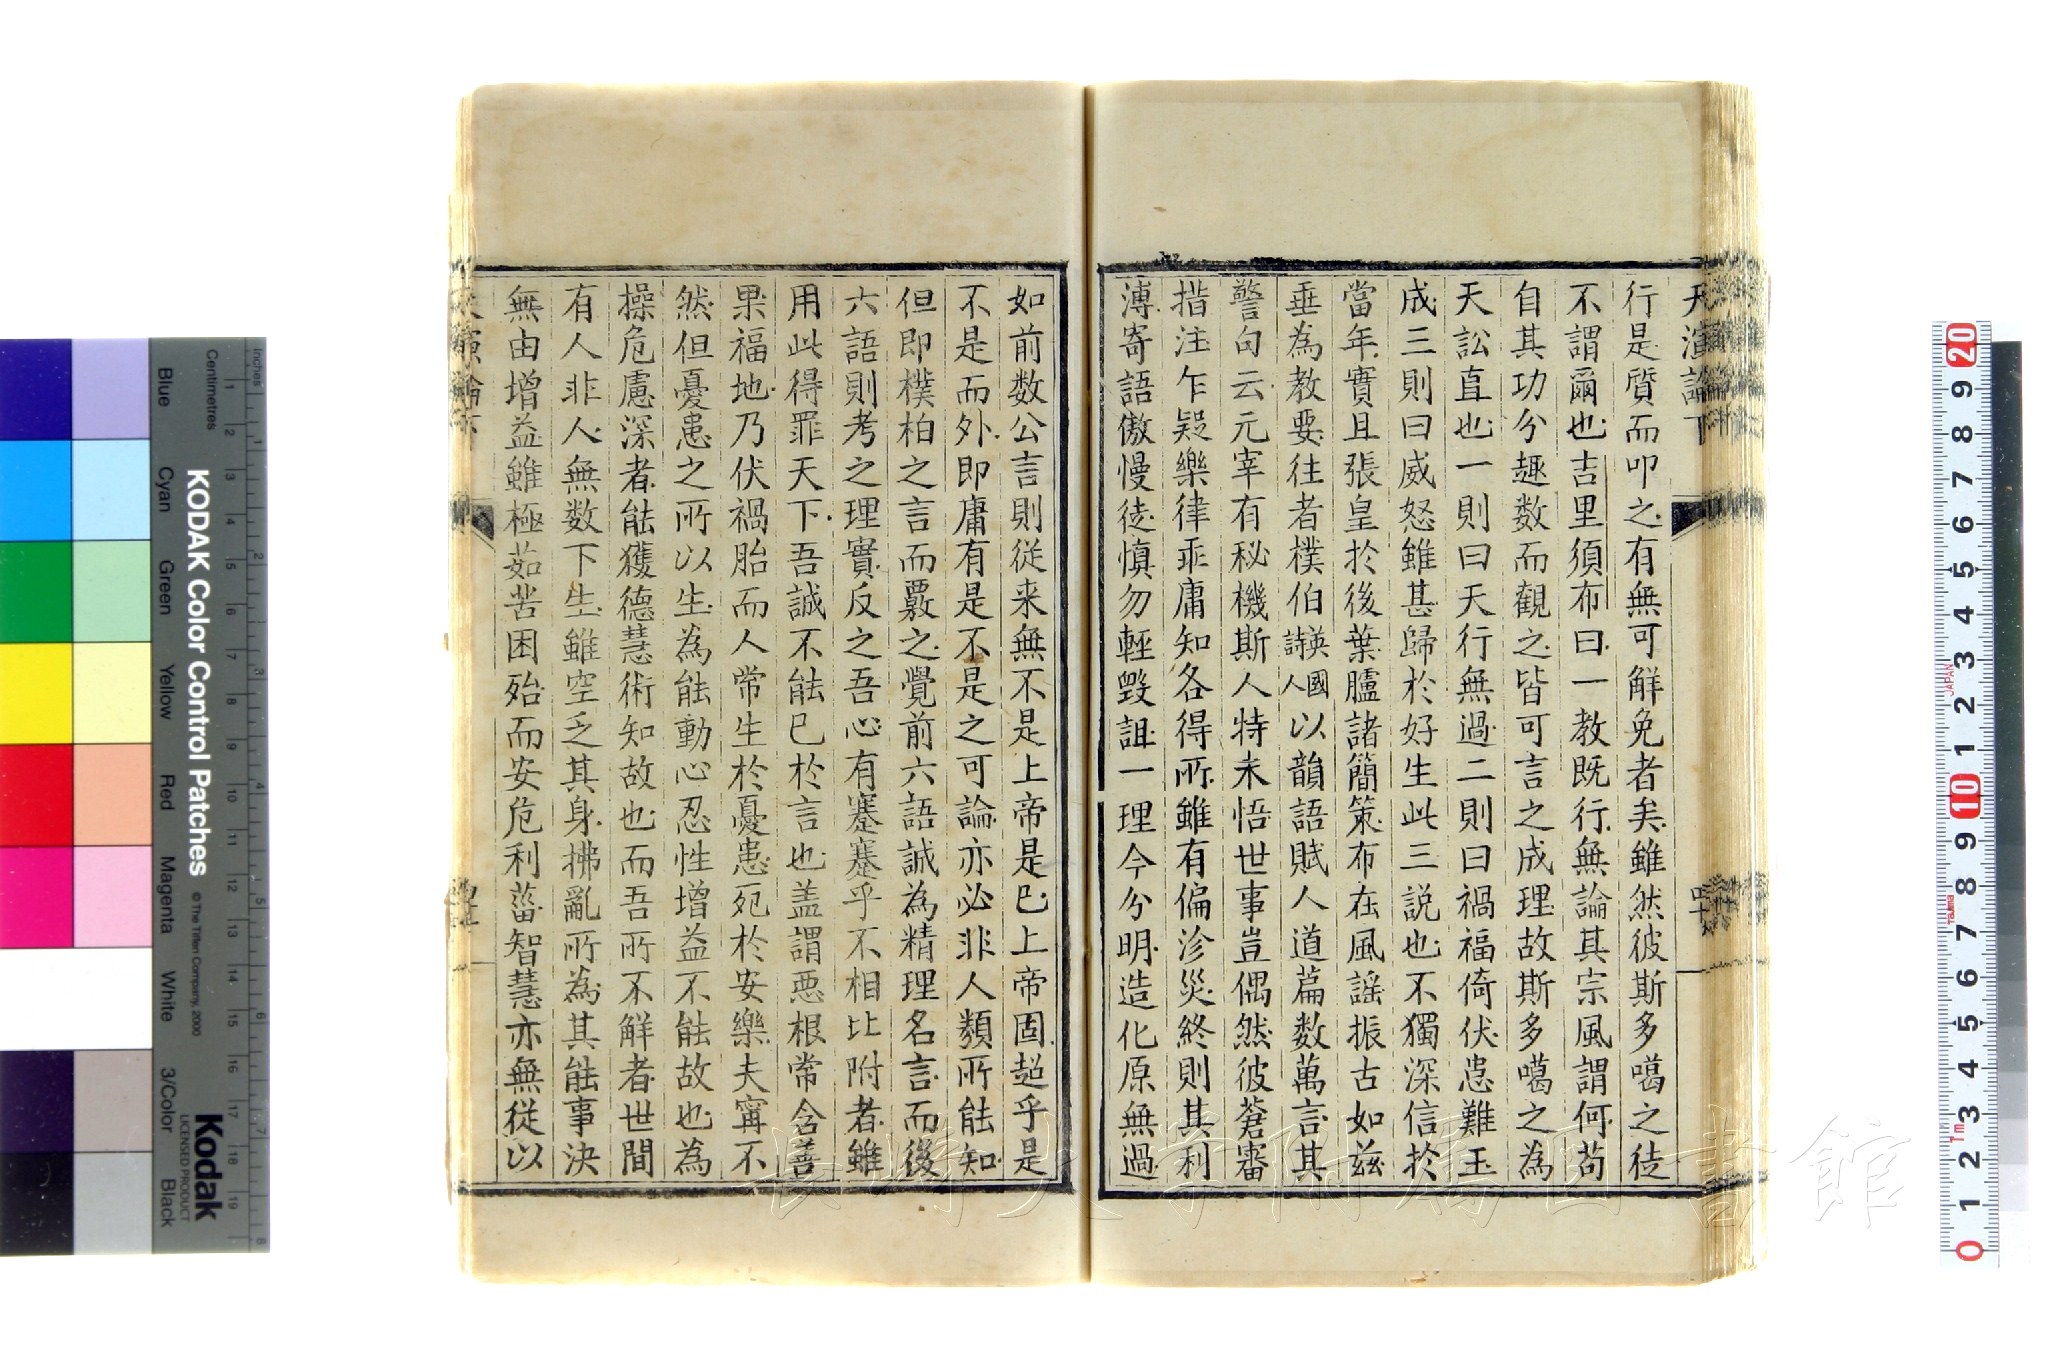 天演論下
行是質而叩之有無可解免者矣雖然彼斯多噶之徒
不謂爾也吉里須布曰一教既行無論其宗風謂何苟
自其功分趣数而觀之皆可言之成理故斯多噶之為
天訟直也一則曰天行無過二則曰禍福倚伏患難玉
成三則曰威怒雖甚歸於好生此三説也不獨深信於
當年實且張皇於後葉臚諸簡策布在風謡振古如兹
垂為教要往者樸伯英國詩人以韻語賦人道篇数萬言其
警句云元宰有秘機斯人特未悟世事豈偶然彼蒼審
措注乍疑樂律乖庸知各得所雖有偏沴災終則其利
溥寄語傲慢徒慎勿輕毀詛一理今分明造化原無過
四十
如前数公言則從来無不是上帝是已上帝固超乎是
不是而外即庸有是不是之可論亦必非人類所能知
但即樸柏之言而覈之覺前六語誠為精理名言而後
六語則考之理實反之吾心有蹇蹇乎不相比附者雖
用此得罪天下吾誠不能已於言也盖謂惡根常含善
果福地乃伏禍胎而人常生於憂患死於安樂夫寧不
然但憂患之所以生為能動心忍性增益不能故也為
操危慮深者能獲德慧術知故也而吾所不解者世間
有人非人無数下生雖空乏其身拂亂所為其能事决
無由增益雖極茹苦困殆而安危利菑智慧亦無從以
長崎大学附属図書館
KODAK Color Control Patches
© The Tiffen Company, 2000
Kodak
LICENSED PRODUCT
Inches
Centimetres
Blue
Cyan
Green
Yellow
Red
Magenta
White
3/Color
Black
JAPAN
Tajima